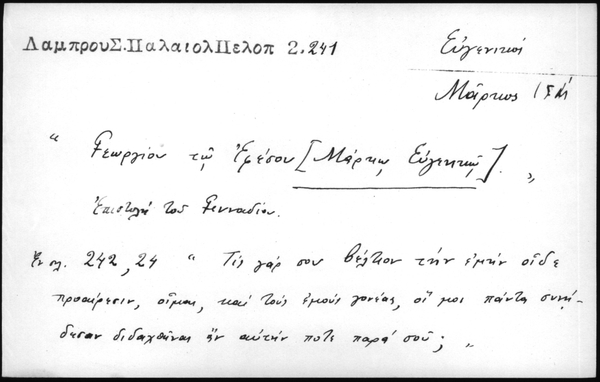 ΛαμπρουΣ.ΠαλαιολΠελοπ 2.241
Εὐγενικοί
Μᾶρκος
" Γεωργίου τῷ Ἐφέσου [Μάρκῳ Εὐγενικῷ]. "
Ἐπιστολὴ τοῦ Γενναδίου.
Ἐν σ. 242,24 " Τίς γάρ σου βέλτιον τὴν ἐμὴν οἶδε
προαίρεσιν, οἶμαι, καὶ τοὺς ἐμοὺς γονέας, οἵ μοι πάντα συνῄ-
δεσαν διδαχθῆναι ἂν αὐτήν ποτε παρὰ σοῦ; "